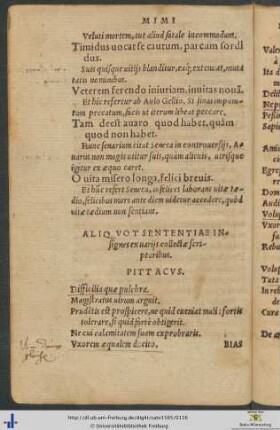 MIMI
Veluti mortem, aut aliud fatale incommodum.
Timidus uocat se cautum, parcum sordi
dus.
Suis quisque uitijs blanditur, eaq; extenuat, muta
tis nominibus.
Veterem ferendo iniuriam, inuitas nouā.
Et hic refertur ab Aulo Gellio. Si sinas impuni-
tum peccatum, facis ut iterum libeat peccare.
Tam deest auaro quod habet, quàm
quod non habet.
Hunc senarium citat Seneca in controuersijs. A-
uarus non magis utitur suis, quàm alienis, utrisque
igitur ex æquo caret.
O uita misero longa, felici breuis.
Et hūc refert Seneca, infelices laborant uitæ tæ-
dio, felicibus mors ante diem uidetur accedere, quòd
uitæ tædium non sentiant.
ALIQVOT SENTENTIAE IN-
signes ex uarijs collectæ scri-
ptoribus.
PITTACVS.
Difficilia quæ pulchra.
Magistratus uirum arguit.
Prudētis est prospicere, ne quid eueniat mali: fortis
tolerare, si quid fortè obtigerit.
Ne cui calamitatem suam exprobraris.
Vxorem æqualem ducito.
BIAS
http://dl.ub.uni-freiburg.de/diglit/cato1585/0116
© Universitätsbibliothek Freiburg